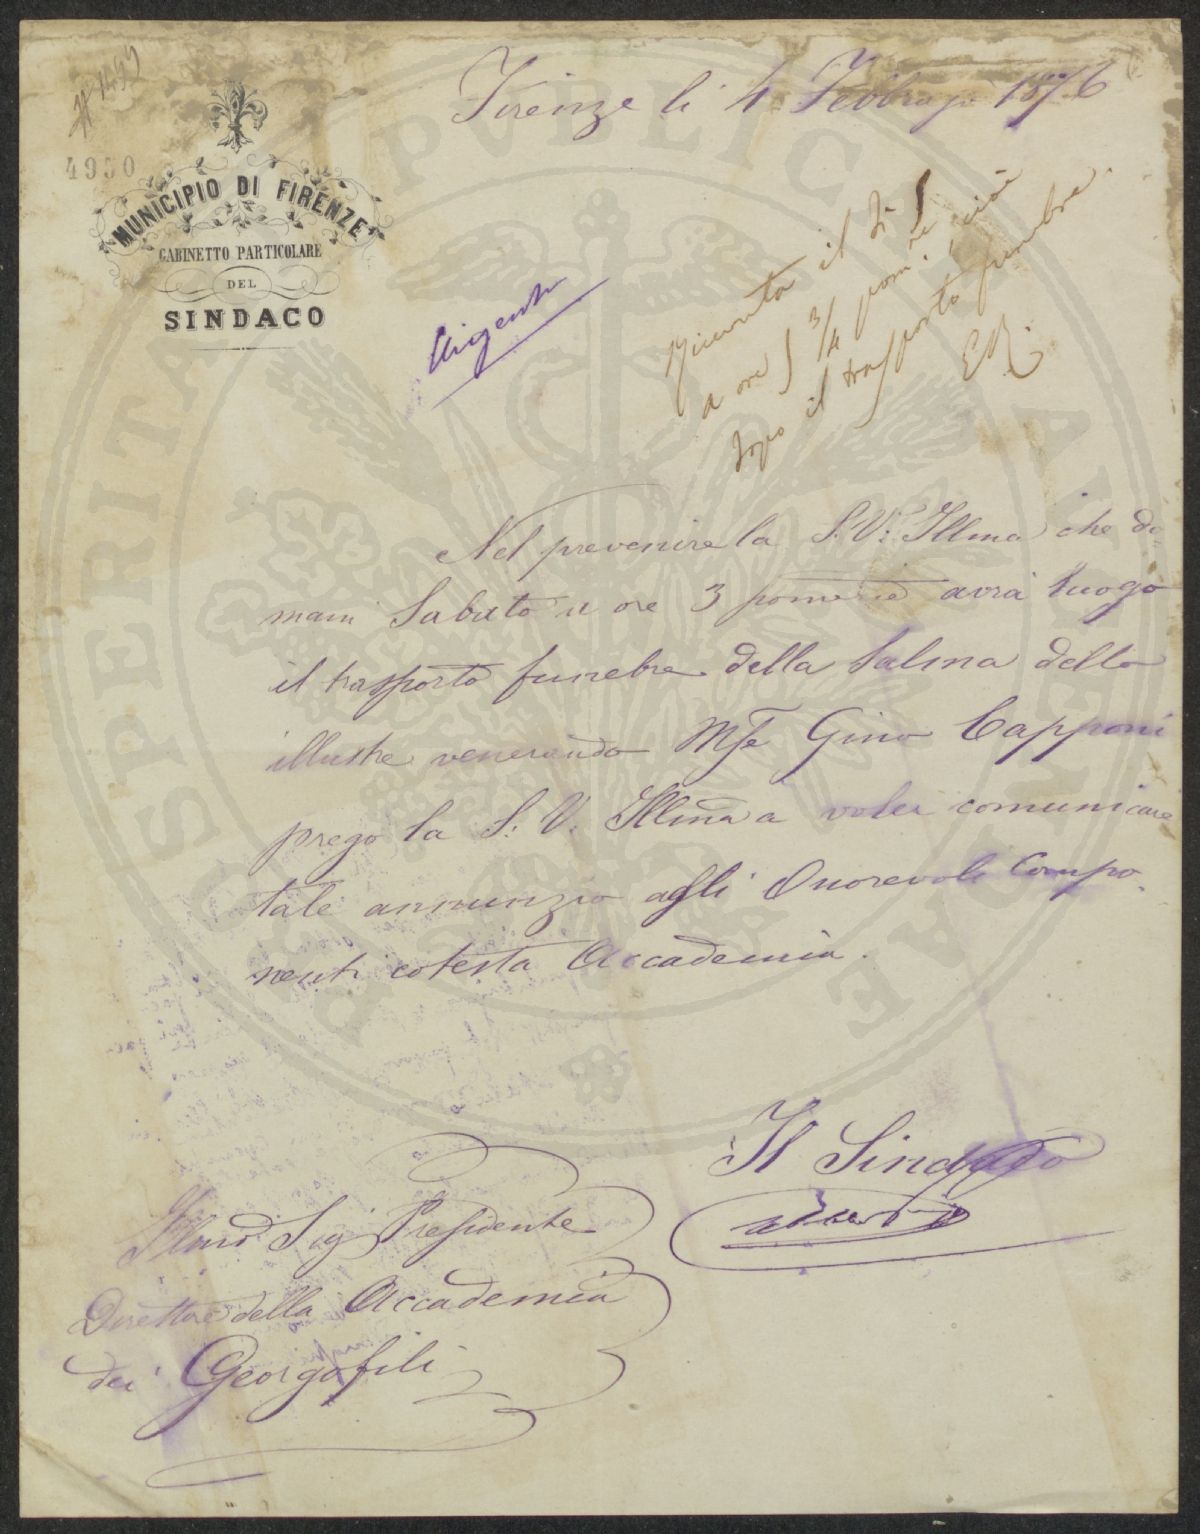 4950
MUNICIPIO DI FIRENZE
GABINETTO PARTICOLARE
DEL
SINDACO
Firenze li 4 Febbrajo 1876
Urgente
il dì 5
a ore 5 3/4 pom.ne cioè
dopo il trasporto funebre.
Nel prevenire la S. V: Illma che do
mani Sabato a ore 3 pomerid avrà luogo
il trasporto funebre della Salma dello
illustre venerando Mse Gino Capponi
prego la S: V. Illma a voler comunicare
tale annunzio agli Onorevoli Compo
nenti cotesta Accademia.
Il Sindaco
Illmo Sig Presidente
Direttore della Accademia
dei Georgofili
PROSPERITATI PUBLICAE AUGENDAE